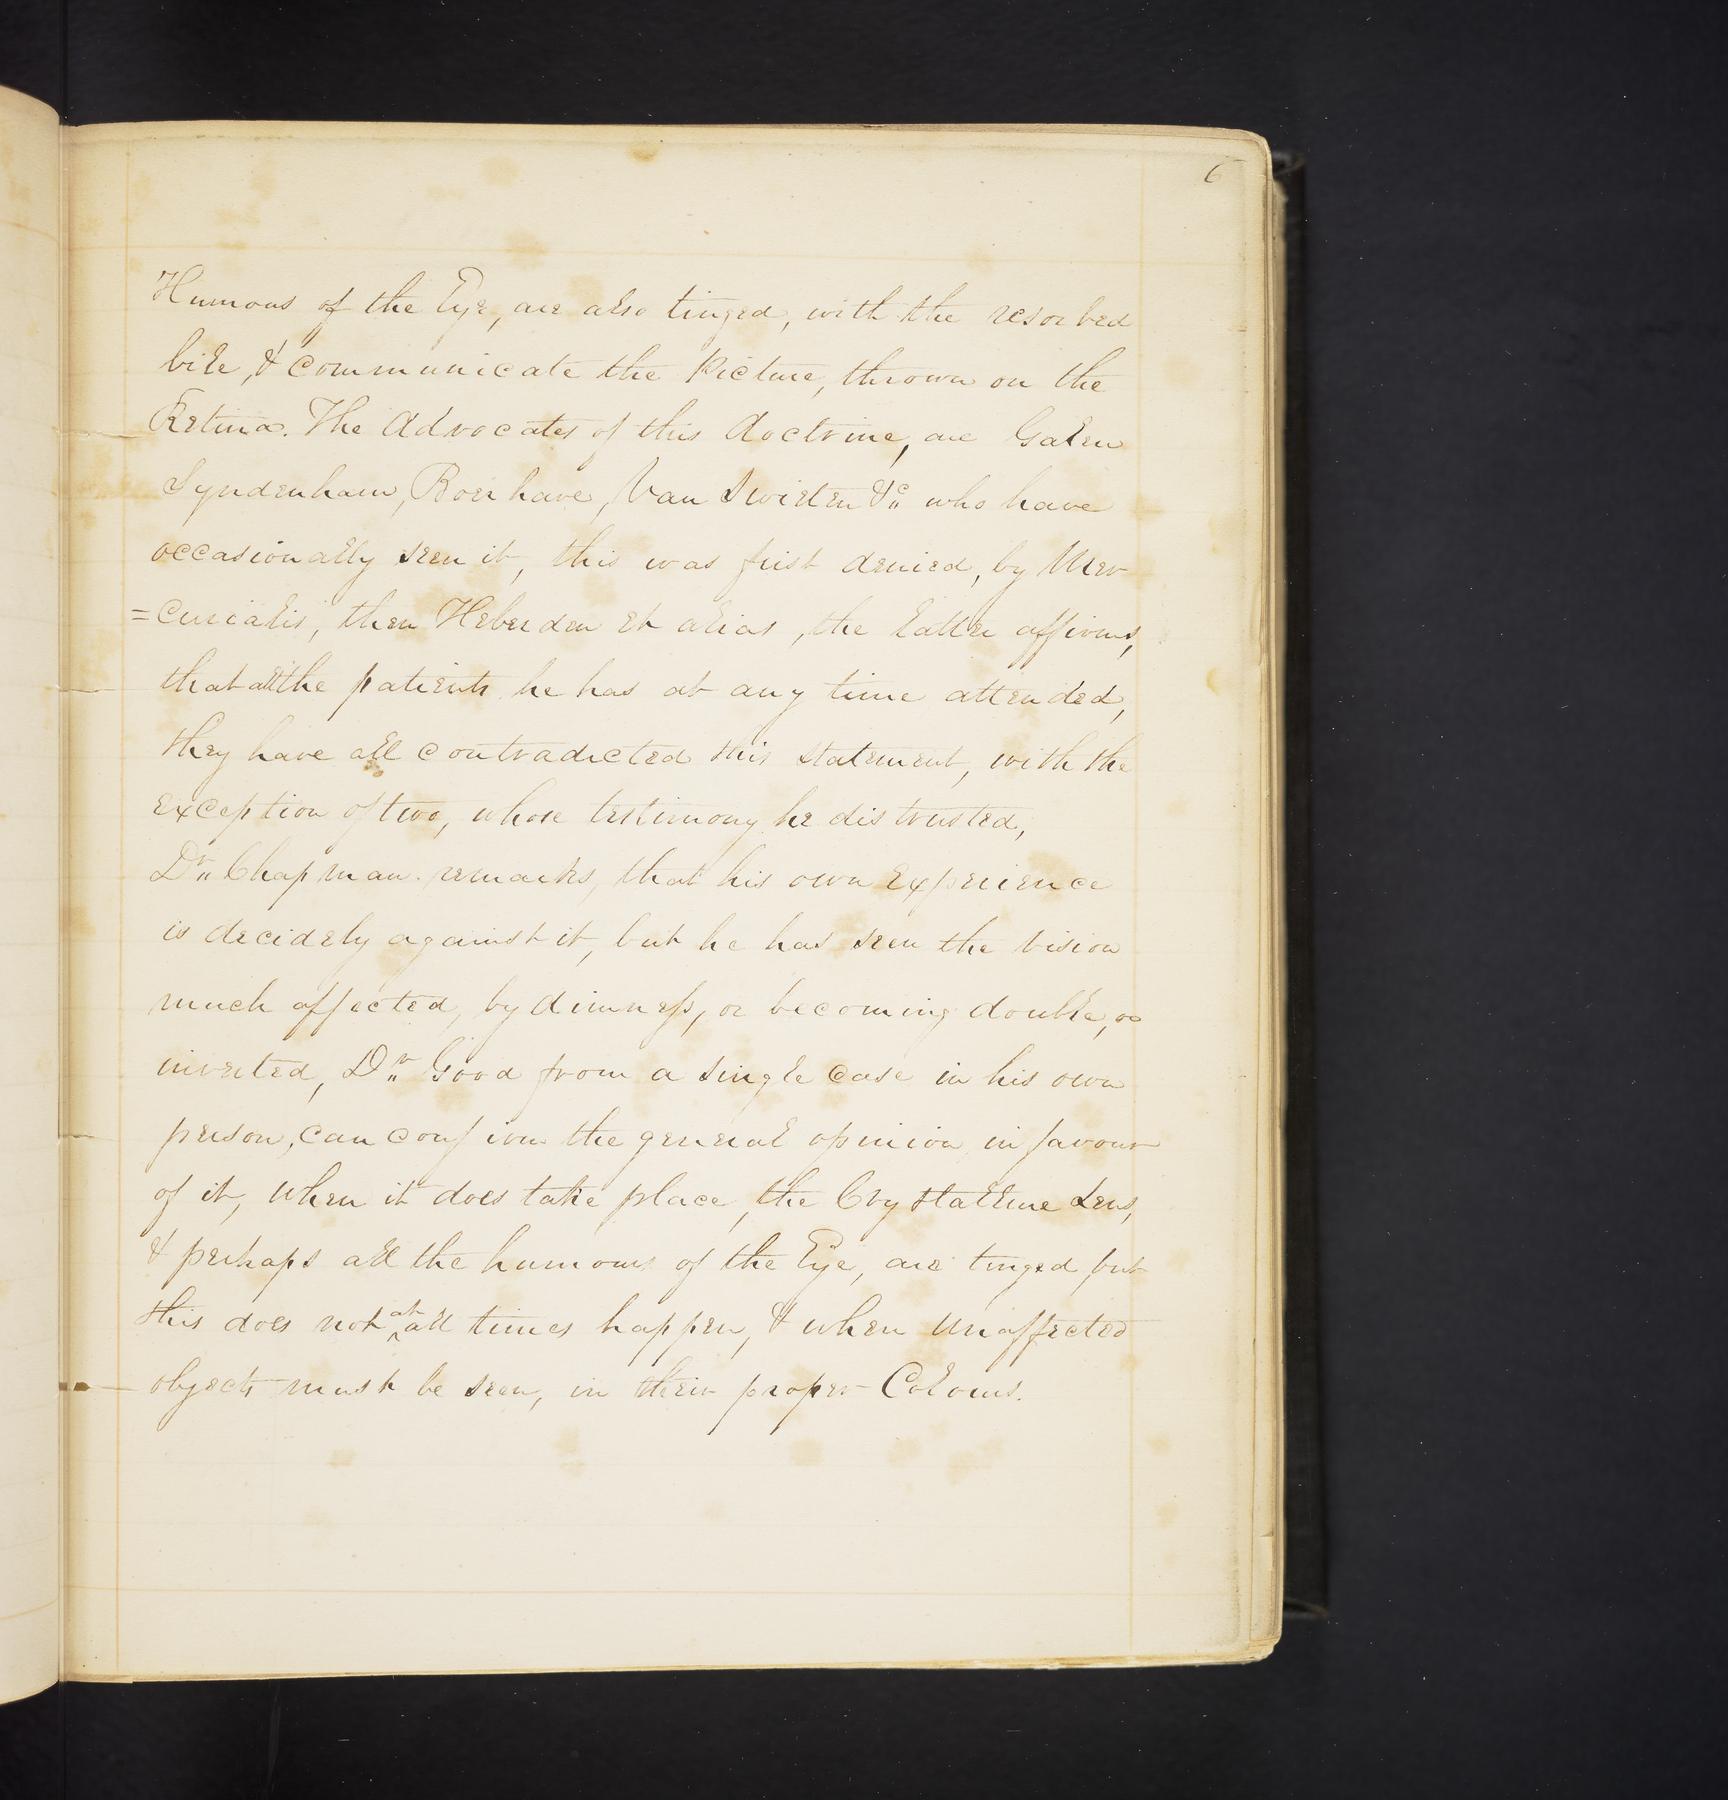 6
Humours of the Eye, are also tinged, with the resorbed
bile, & communicate the Picture, thrown on the
Retina. The Advocates of this doctrine, are Galen
Syndenham, Boerhave, Van Swieten &c who have
occasionally seen it, this was first denied, by Mer
=curialis, then Heberden et alias, the latter affirms,
that all the patients he has at any time attended,
they have all contradicted this statement, with the
exception of two, whose testimony he distrusted,
Dr. Chapman remarks, that his own experience
is decidely against it, but he has seen the vision
much affected, by dimness, or becoming double, or
inverted, Dr. Good from a single case in his own
person, can confirm the general opinion in favour
of it, when it does take place, the Crystalline Lens,
& perhaps all the humours of the Eye, are tinged but
this does not at all times happen, & when unaffected
objects must be seen, in their proper Colours.